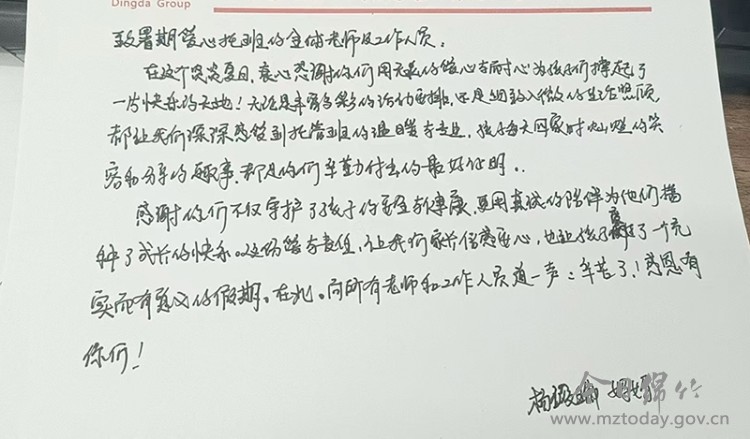 Dingda Group
致暑期爱心托班的全体老师及工作人员：
在这个炎炎夏日，衷心感谢你们用无私的爱心与耐心为孩子们撑起了
一片快乐的天地！无论是丰富多彩的活动安排，还是细致入微的生活照顾
都让我们深深感受到托管班的温暖与专业，孩子每天回家时灿烂的笑
容和分享的趣事，都是你们辛勤付出的最好证明。
感谢你们不仅守护了孩子的安全与健康，更用真诚的陪伴为他们播
种了成长的快乐。这份爱与责任，让我们家长倍感安心，也让孩子度过了一个充
实而有意义的假期。在此，向所有老师和工作人员道一声：辛苦了！感恩有
你们！
妈妈
今日绵竹
www.mztoday.gov.cn